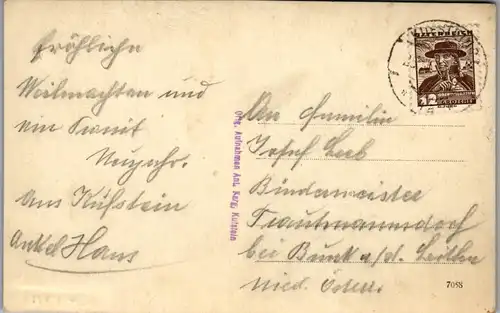 Fröhliche
Weihnachten und
ein Prosit
Neujahr.
Aus Kufstein
Onkel Hans
Orig. Aufnahmen Ant. Karg, Kufstein
ÖSTERREICH
12
GROSCHEN
An Familie
Josef Leeb
Bindermeister
Trautmannsdorf
bei Bruck a/d. Leitha
Nied. Österr.
7058